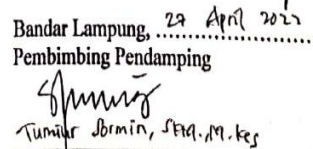 Bandar Lampung, 27 April 2022
Pembimbing Pendamping
Tumiur Sormin, SKM., M.Kes